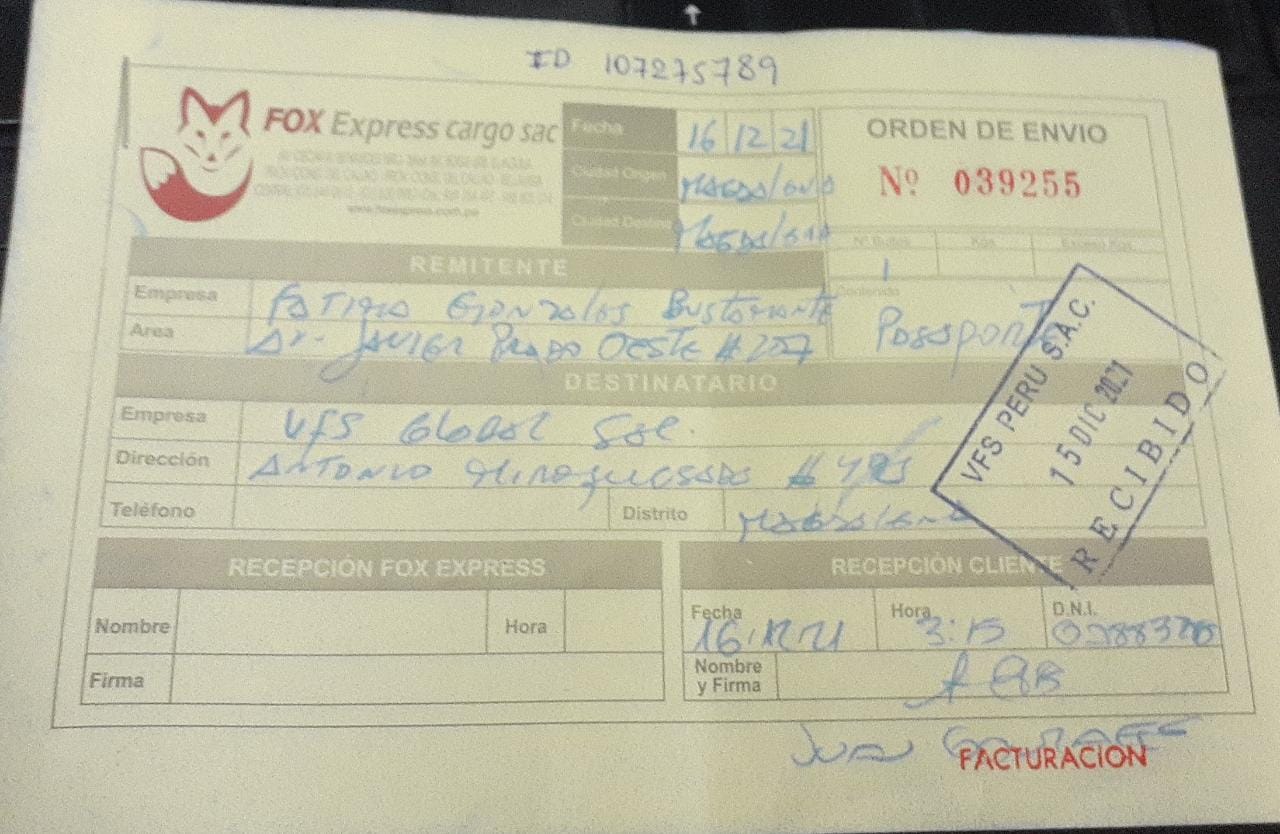 ID 107275789
FOX Express cargo sac
Fecha 16 12 21
Ciudad Origen Magdalena
Ciudad Destino Magdalena
ORDEN DE ENVIO
Nº 039255
Nº Bultos Kgs. Exceso Kgs.
1
REMITENTE
Empresa Gonzales Bustamante
Area Av. Javier Prado Oeste # 207
Contenido
Pasaporte
DESTINATARIO
Empresa VFS Global
Dirección Antonio Miroquesada #
Teléfono Distrito Magdalena
VFS PERU S.A.C.
15 DIC 2021
RECIBIDO
RECEPCIÓN FOX EXPRESS
Nombre Hora
Firma
RECEPCIÓN CLIENTE
Fecha 16.12.21 Hora 3:15 D.N.I.
Nombre
y Firma
Juan
FACTURACION